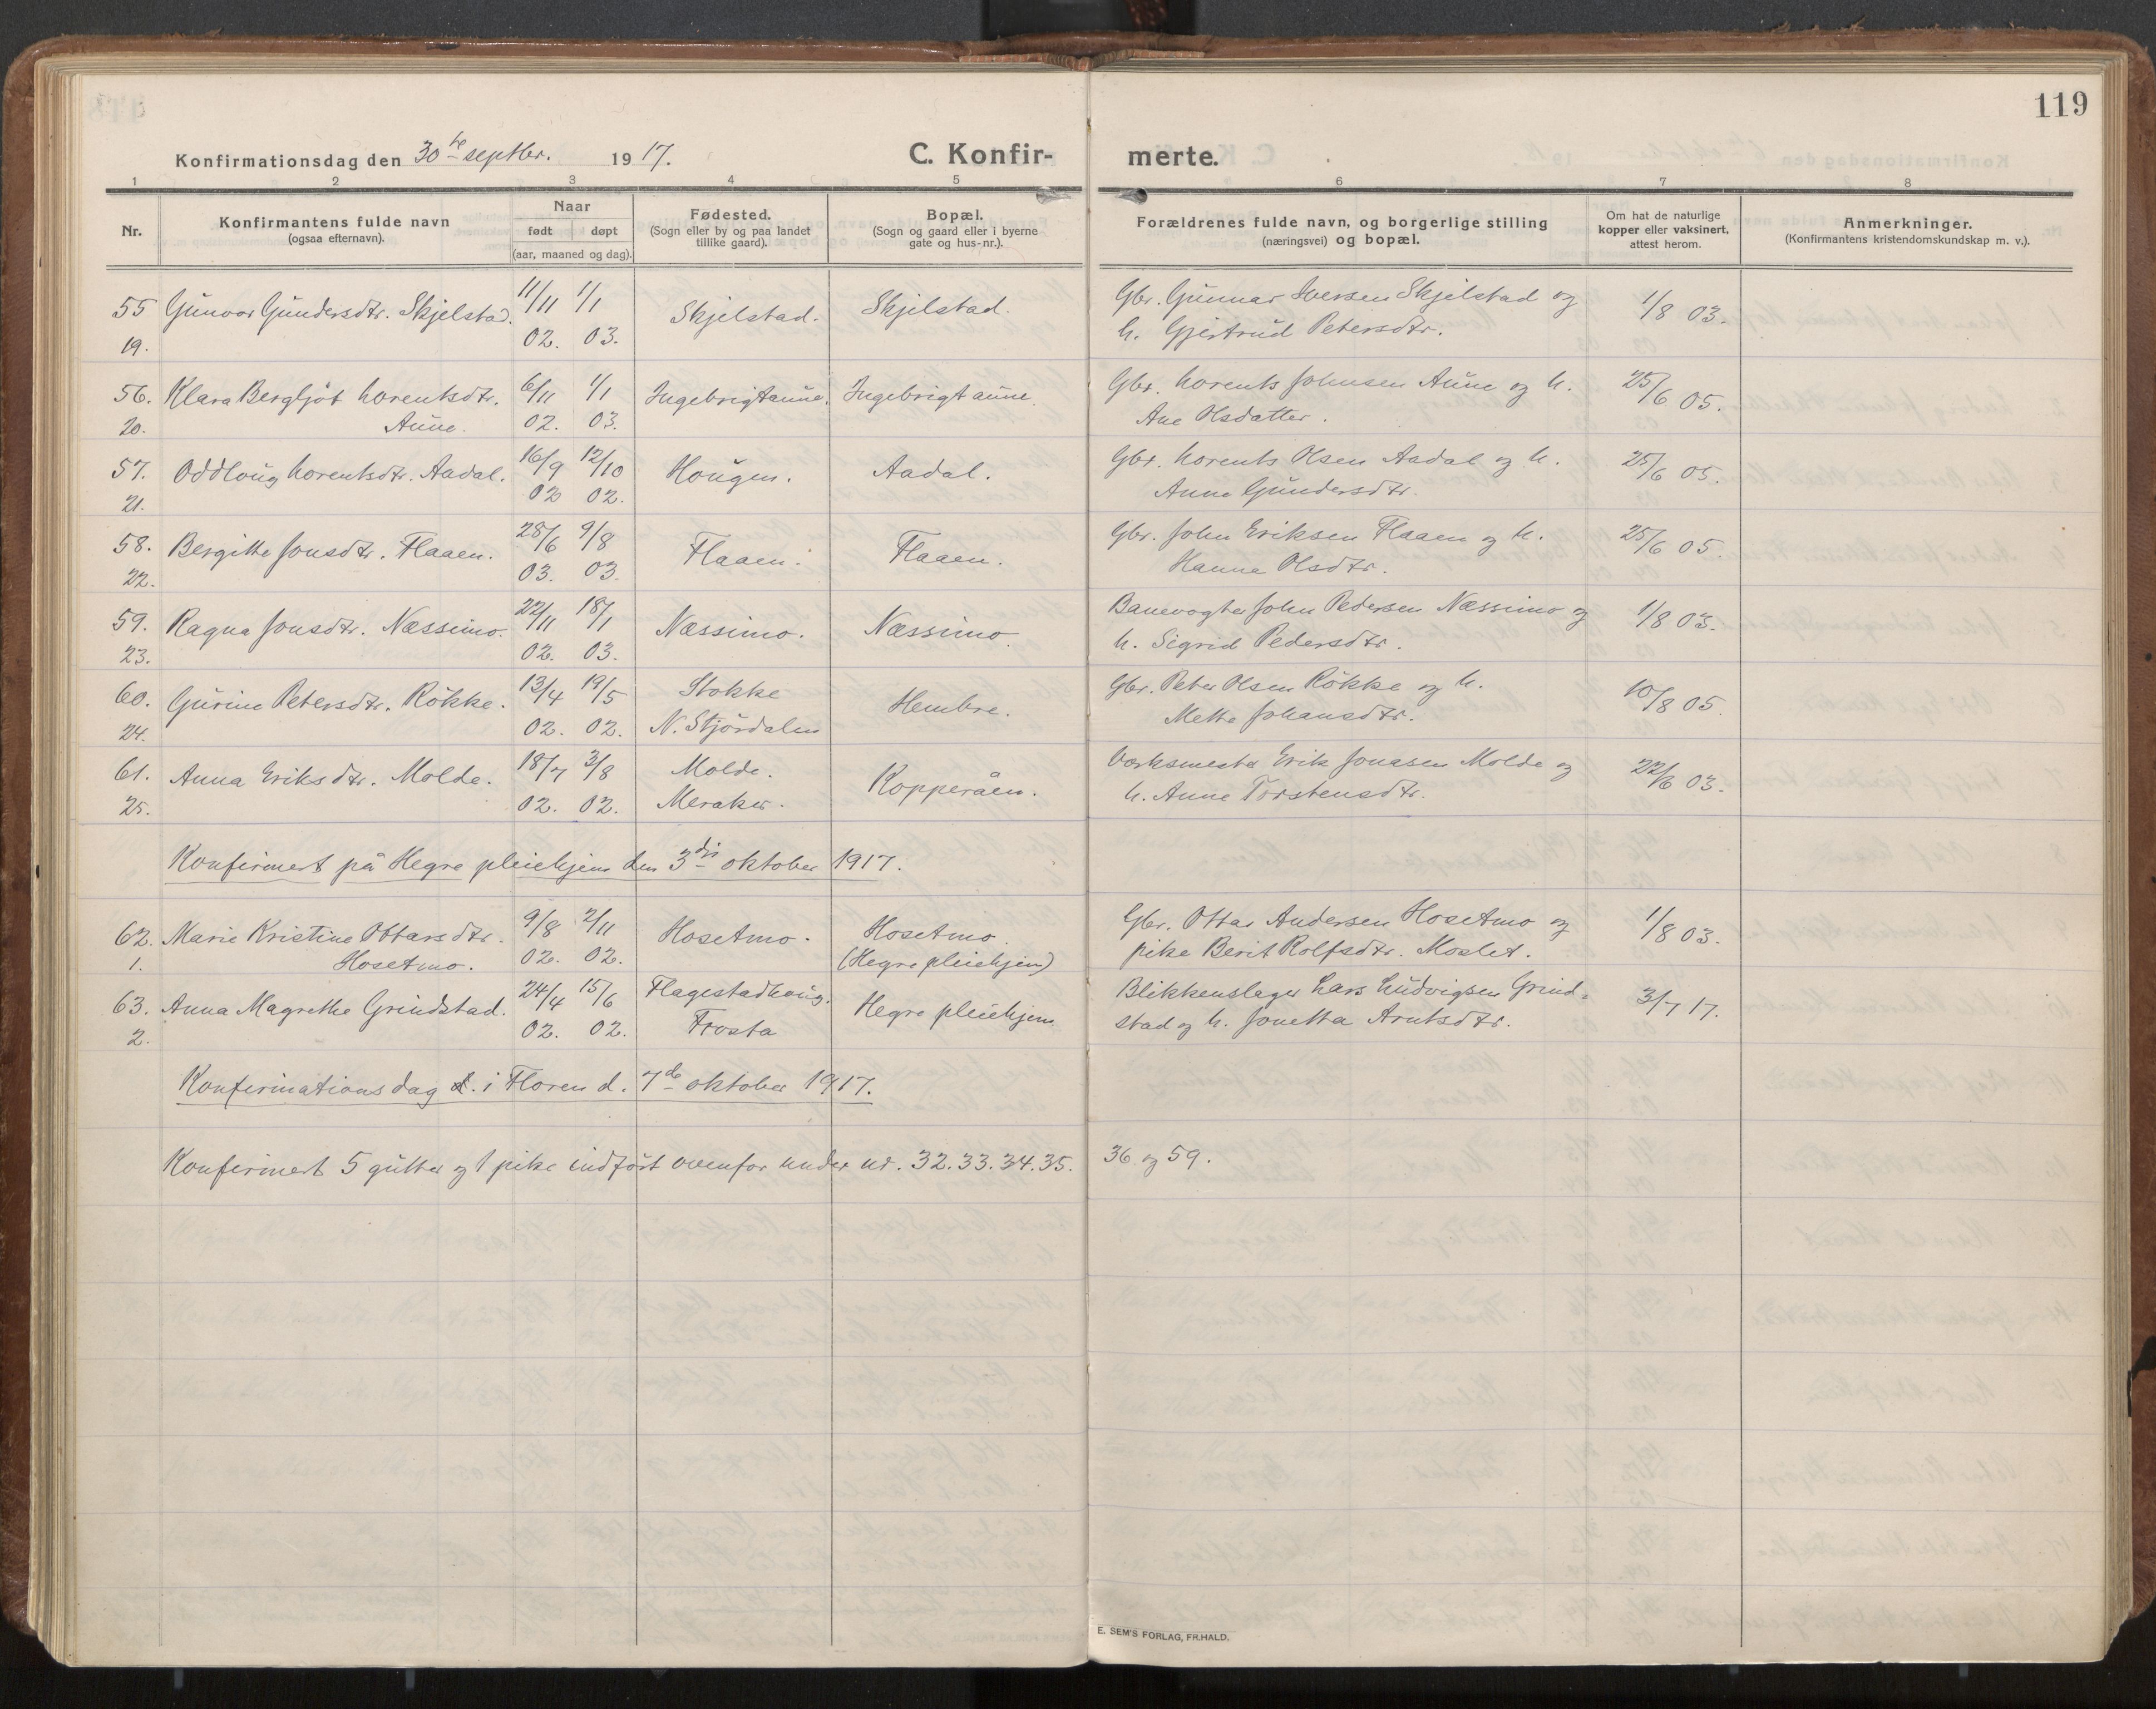 119
Konfirmationsdag den 30te septbr. 1917. C. Konfirmerte.
1 2 3 4 5 6 7 8
Nr.
Konfirmantens fulde navn
(ogsaa efternavn).
Naar
født døpt
(aar, maaned og dag).
Fødested.
(Sogn eller by og paa landet
tillike gaard).
Bopæl.
(Sogn og gaard eller i byerne
gate og hus-nr.).
Forældrenes fulde navn, og borgerlige stilling
(næringsvei) og bopæl.
Om hat de naturlige
kopper eller vaksinert,
attest herom.
Anmerkninger.
(Konfirmantens kristendomskundskap m. v.).
55 Gunvor Gundersdtr. Skjelstad. 11/11 1/1 Skjelstad. Skjelstad. Gbr. Gunnar Iversen Skjelstad og 1/8 03.
19. 02. 03. h. Gjertrud Petersdtr.
56. Klara Bergljot Lorentsdtr. 6/11 1/1 Ingebrigtaune. Ingebrigtaune. Gbr. Lorents Johnsen Aune og h. 25/6 05.
20. Aune. 02. 03. Ane Olsdatter.
57. Oddloug Lorentsdtr. Aadal. 16/9 12/10 Hougen. Aadal. Gbr. Lorents Olsen Aadal og h. 25/6 05.
21. 02 02. Anne Gundersdtr.
58. Bergitte Jonsdtr. Flaaen. 28/6 9/8 Flaaen. Flaaen. Gbr. John Eriksen Flaaen og h. 25/6 05.
22. 03. 03. Hanna Olsdtr.
59. Ragna Jonsdtr. Næssimo. 22/11 18/1 Næssimo. Næssimo. Banevogter John Pedersen Næssimo og 1/8 03.
23. 02. 03. h. Sigrid Pedersdtr.
60. Gurine Petersdtr. Rökke. 13/4 19/5 Stokke Hembre. Gbr. Peter Olsen Rökke og h. 10/8 05.
24. 02. 02. N. Stjördalen Mette Johansdtr.
61. Anna Eriksdtr. Molde. 18/7 3/8 Molde. Kopperåen. Verksmester Erik Jonasen Molde og 22/6 03.
25. 02. 02. Meraker. h. Anne Torstensdtr.
Konfirmert på Hegre pleiehjem den 3die oktober 1917.
62. Marie Kristine Ottarsdtr. 9/8 2/11 Hosetmo. Hosetmo. Gbr. Ottar Andersen Hosetmo og 1/8 03.
1. Hosetmo. 02. 02. (Hegre pleiehjem) pike Berit Rolfsdtr. Moslet.
63. Anna Magrethe Grindstad. 24/4 15/6 Flagestadhoug. Hegre pleiehjem Blikkenslager Lars Ludvigsen Grind- 3/7 17.
2. 02. 02. Frosta stad og h. Jonetta Arntsdtr.
Konfirmationsdag i Floren d. 7de oktober 1917.
Konfirmert 5 gutter og 1 pike indført ovenfor under nr. 32. 33. 34. 35. 36. og 59.
E. SEM'S FORLAG, FR.HALD.